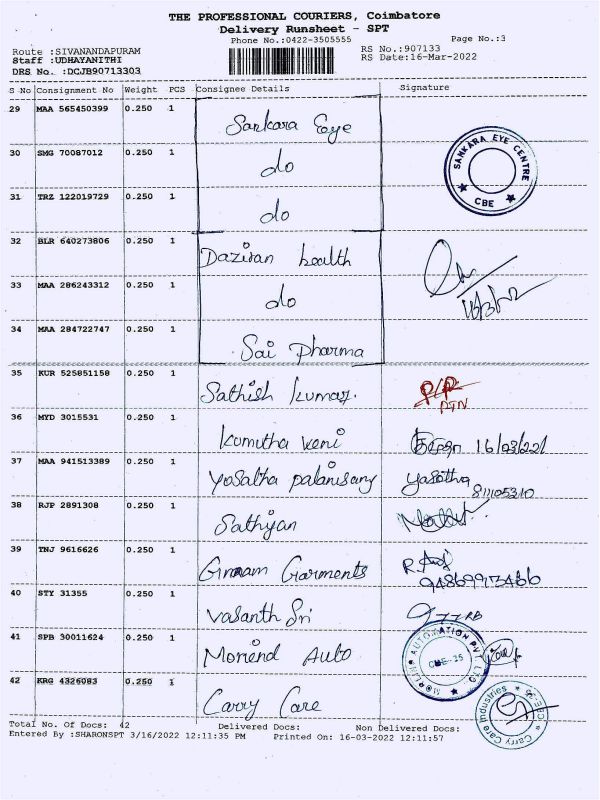 THE PROFESSIONAL COURIERS, Coimbatore
Delivery Runsheet - SPT
Phone No.:0422-3505555 Page No.:3
Route :SIVANANDAPURAM RS No.:907133
Staff :UDHAYANITHI RS Date:16-Mar-2022
DRS No. :DCJB90713303
S No Consignment No Weight PCS Consignee Details Signature
29 MAA 565450399 0.250 1 Sankara Eye
30 SMG 70087012 0.250 1 do
SANKARA EYE CENTRE CBE
31 TRZ 122019729 0.250 1 do
32 BLR 640273806 0.250 1 Daziran health
33 MAA 286243312 0.250 1 do
16/3/22
34 MAA 284722747 0.250 1 Sai Pharma
35 KUR 525851158 0.250 1 Sathish kumar.
36 MYD 3015531 0.250 1 Kumutha Veni 16/03/22
37 MAA 941513389 0.250 1 Yasaltha palanisany Yasotha
38 RJP 2891308 0.250 1 Sathiyan
39 TNJ 9616626 0.250 1 Garments
40 STY 31355 0.250 1 Vasanth Sri
41 SPB 30011624 0.250 1 Moriend Auto AUTOMATION PVT LTD
42 KRG 4326083 0.250 1 Carry Care Carry Care Industries
Total No. Of Docs: 42 Delivered Docs: Non Delivered Docs:
Entered By :SHARONSPT 3/16/2022 12:11:35 PM Printed On: 16-03-2022 12:11:57